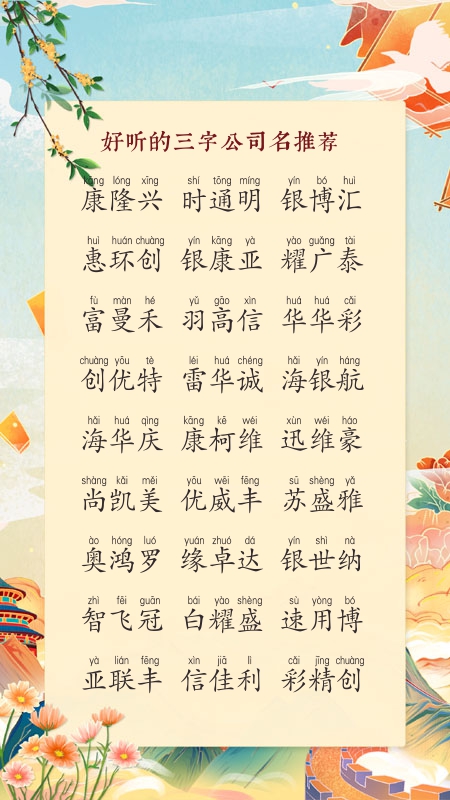 好听的三字公司名推荐
kāng lóng xīng shí tōng míng yín bó huì
康隆兴 时通明 银博汇
huì huán chuàng yín kāng yà yào guǎng tài
惠环创 银康亚 耀广泰
fù màn hé yǔ gāo xìn huá huá cǎi
富曼禾 羽高信 华华彩
chuàng yōu tè léi huá chéng hǎi yín háng
创优特 雷华诚 海银航
hǎi huá qìng kāng kē wéi xùn wéi háo
海华庆 康柯维 迅维豪
shàng kǎi měi yōu wēi fēng sū shèng yǎ
尚凯美 优威丰 苏盛雅
ào hóng luó yuán zhuó dá yín shì nà
奥鸿罗 缘卓达 银世纳
zhì fēi guān bái yào shèng sù yòng bó
智飞冠 白耀盛 速用博
yà lián fēng xìn jiā lì cǎi jīng chuàng
亚联丰 信佳利 彩精创